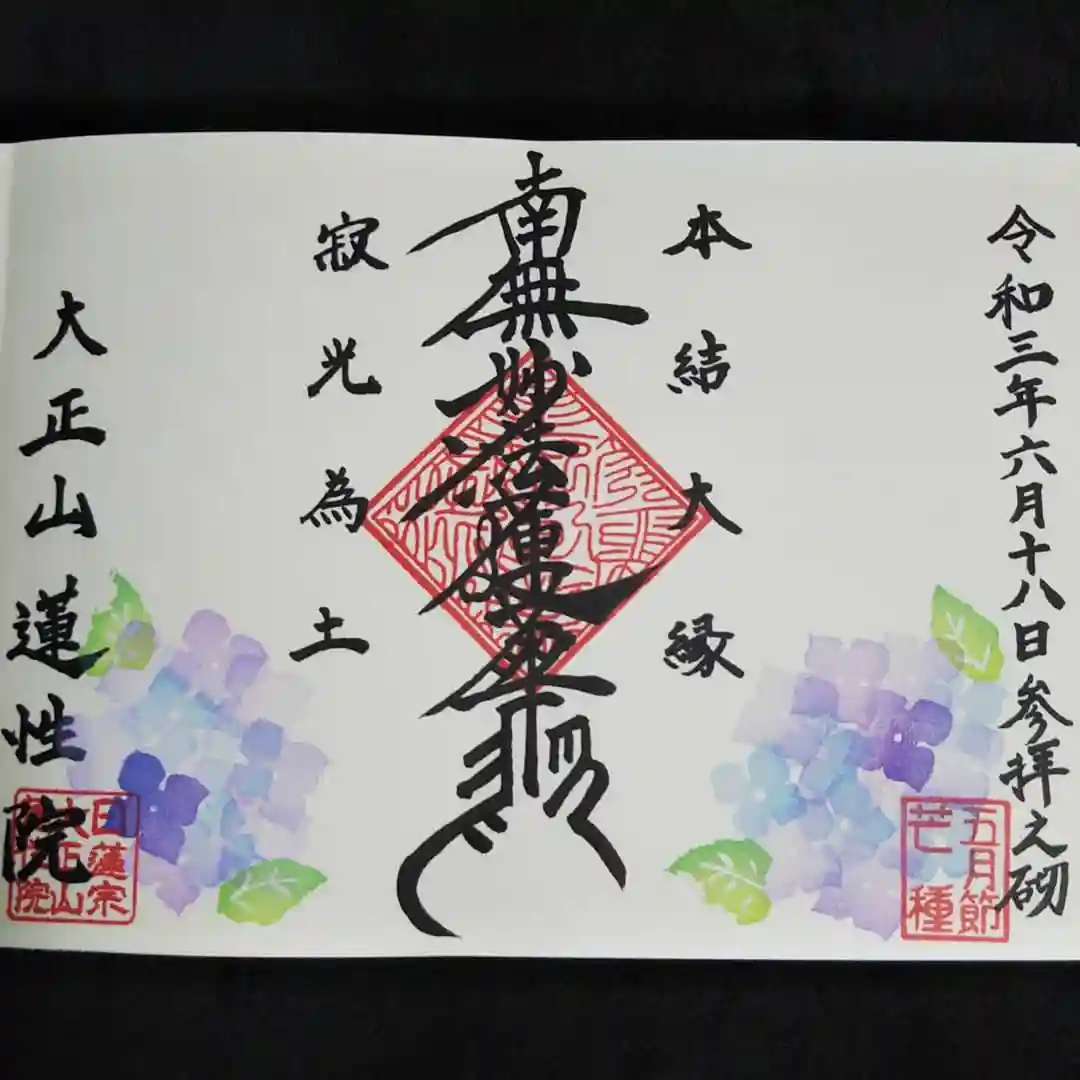 令和三年六月十八日参拝之砌
五月節
芒種
本結大縁
南無妙法蓮華経
寂光為土
大正山蓮性院
日蓮宗
大正山
院